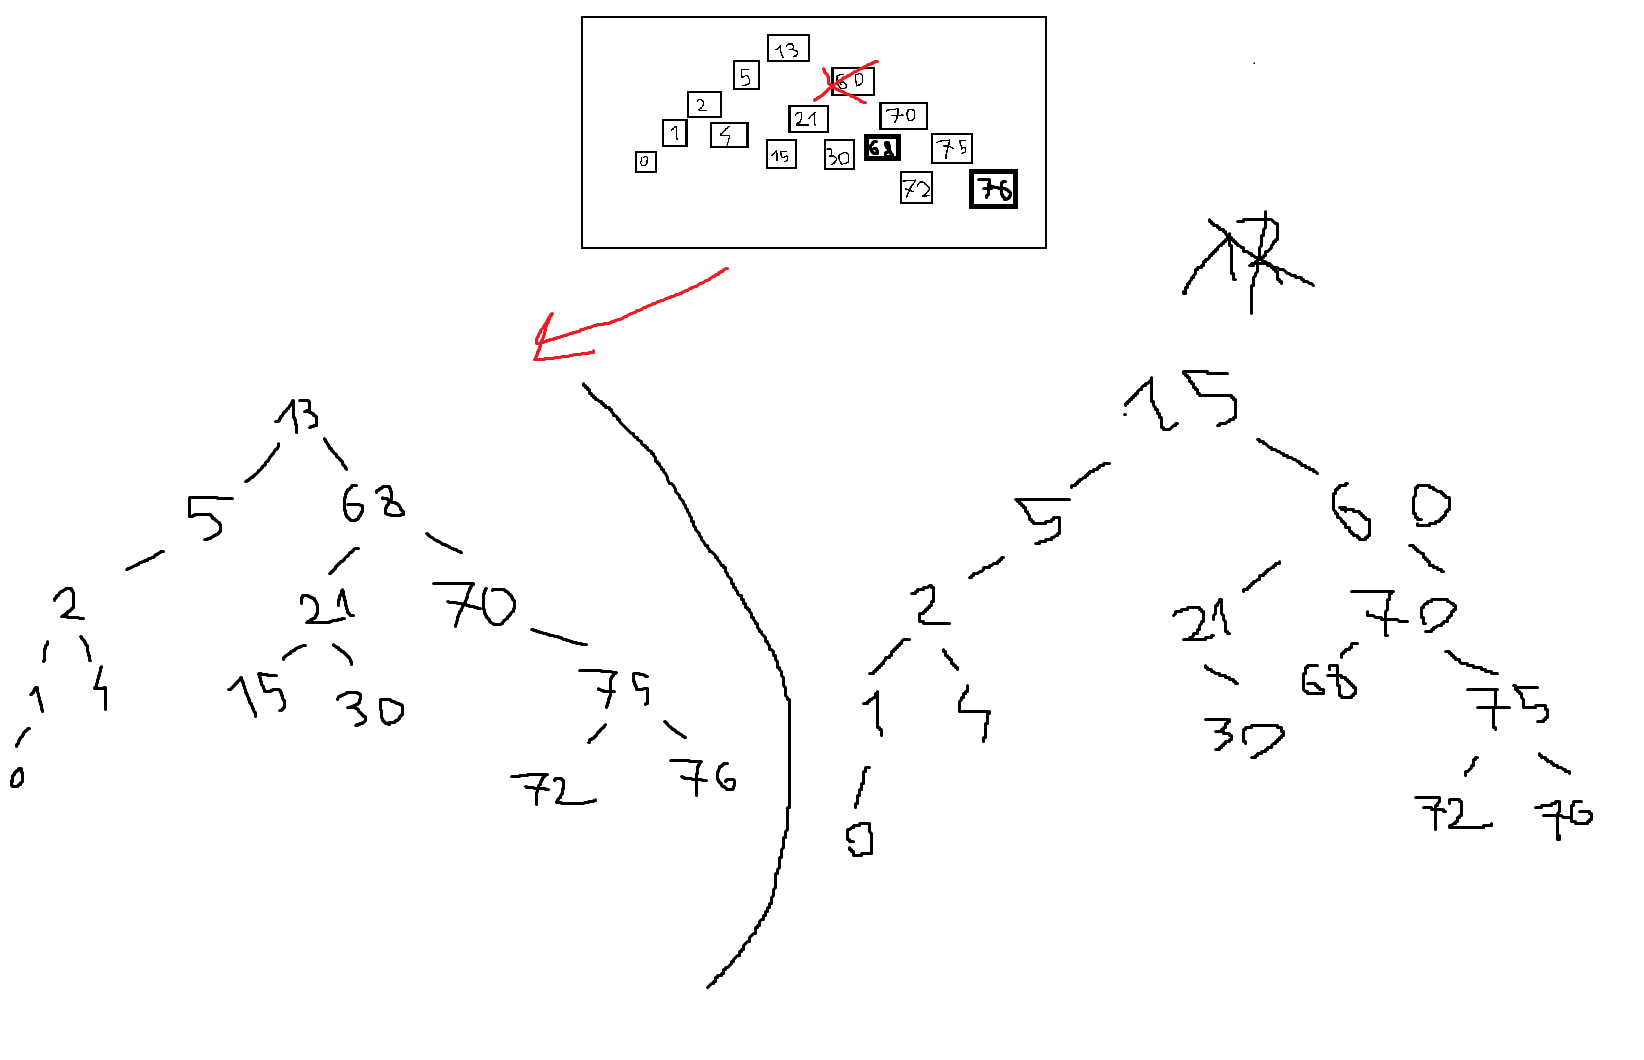 13
5
60
2
21
70
1
4
15
30
68
75
0
72
76
13
5
68
2
21
70
1
4
15
30
75
0
72
76
15
5
60
2
21
70
1
4
30
68
75
0
72
76